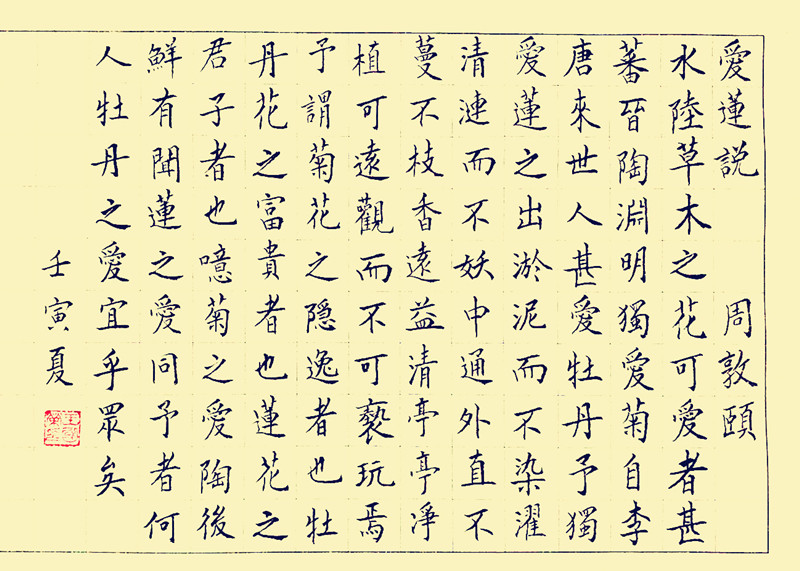 愛蓮説 周敦頤
水陸草木之花可愛者甚
蕃晉陶淵明獨愛菊自李
唐來世人甚愛牡丹予獨
愛蓮之出淤泥而不染濯
清漣而不妖中通外直不
蔓不枝香遠益清亭亭淨
植可遠觀而不可褻玩焉
予謂菊花之隱逸者也牡
丹花之富貴者也蓮花之
君子者也噫菊之愛陶後
鮮有聞蓮之愛同予者何
人牡丹之愛宜乎眾矣
壬寅夏